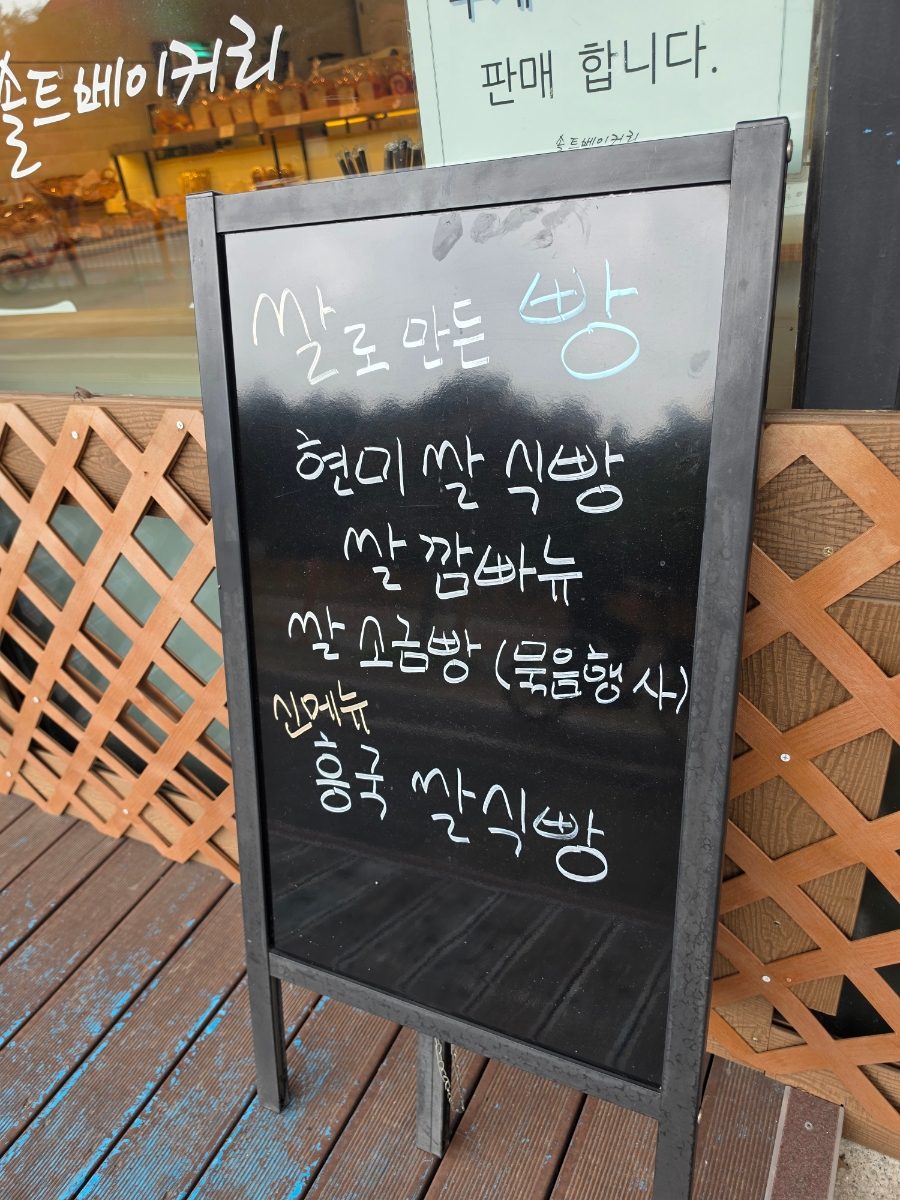 솔트베이커리
판매 합니다.
솔트베이커리
쌀로 만든 빵
현미 쌀 식빵
쌀 깜빠뉴
쌀 소금빵 (묶음행사)
신메뉴
흥국 쌀식빵